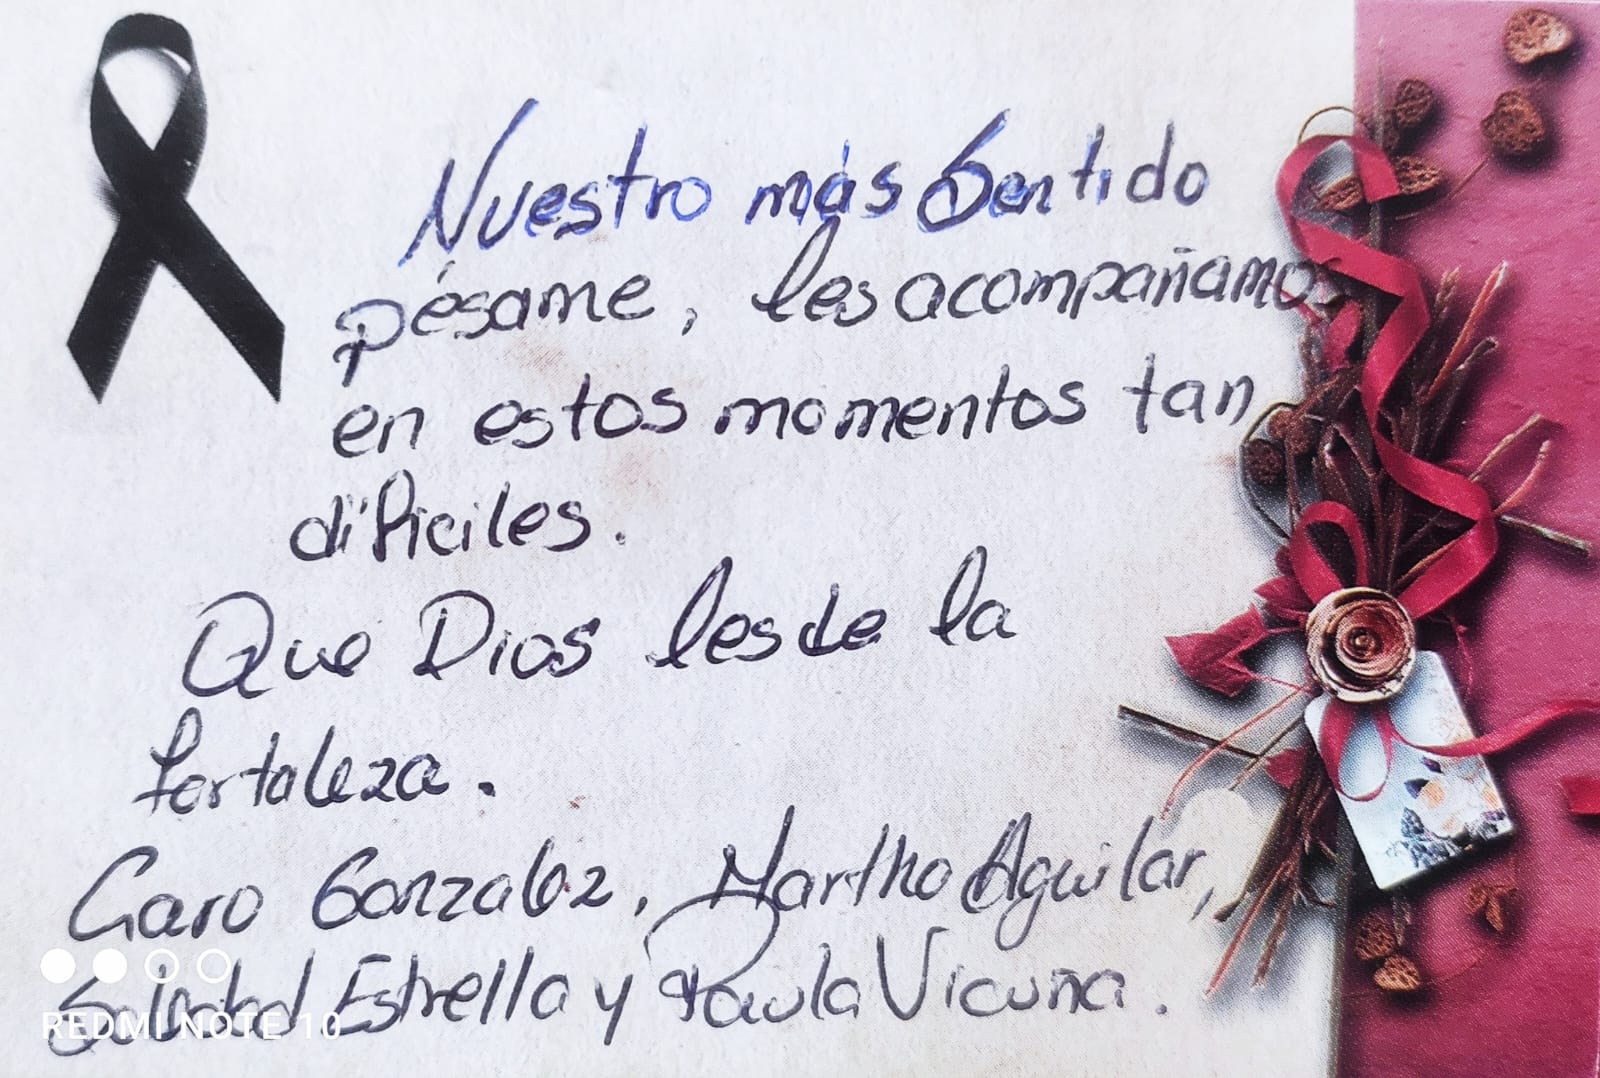 Nuestro más Sentido
pésame, les acompañamos
en estos momentos tan
difíciles.
Que Dios les de la
fortaleza.
Caro Gonzalez, Martha Aguilar,
Soledad Estrella y Paula Vicuña.
REDMI NOTE 10